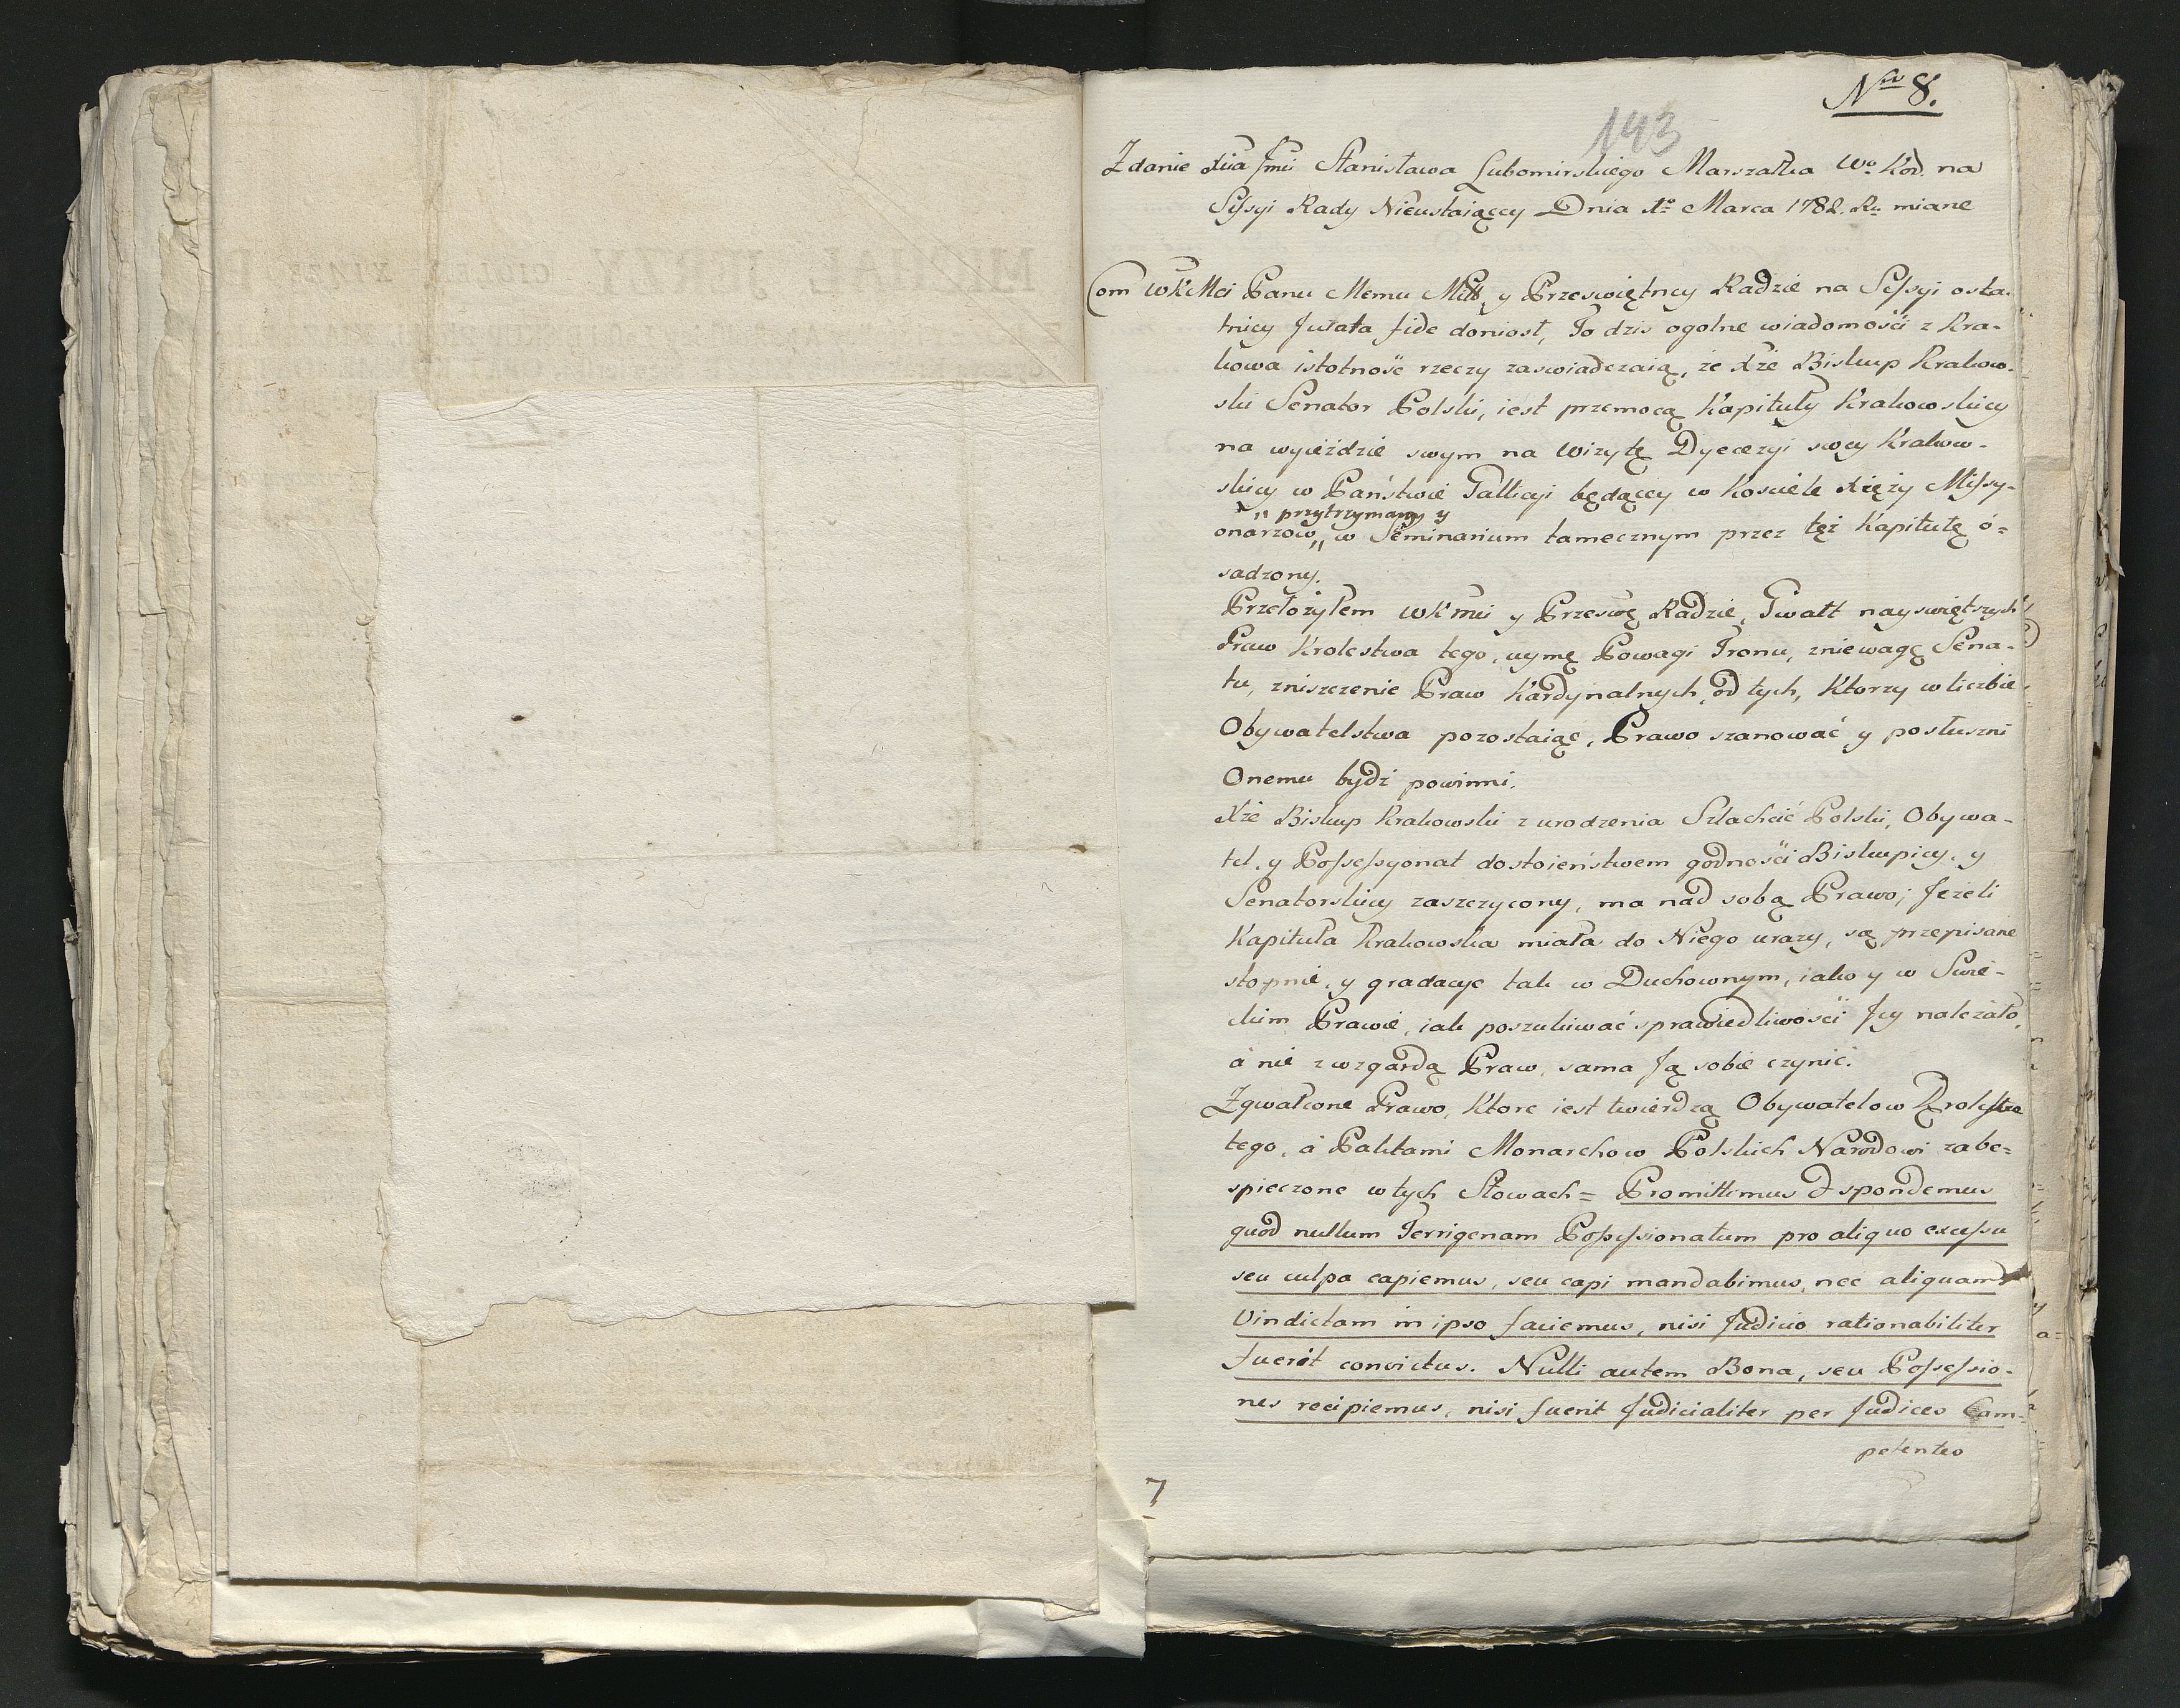 Nro 8.
143
Zdanie Xcia Jmci Stanisława Lubomirskiego Marszałka Wo Kor. na
Sessyi Rady Nieustaiący Dnia 1o Marca 1782. Ru miane
Com WKMci Panu Memu Miłł. y Przeswiętney Radzie na Sessyi osta-
tniey Jurata fide doniosł, To dzis ogolne wiadomości z Kra-
kowa istotność rzeczy zaswiadczaią, że Xże Biskup Krakow-
ski Senator Polski, iest przemocą Kapituły Krakowskiey
na wyieździe swym na Wizytę Dyecezyi swey Krakow-
skiey w Państwie Gallicyi będącey w Kosciele Xięży Missy-
" przytrzymany y
onarzow " w Seminarium tamecznym przez też Kapitułę o-
sadzony.
Przełożyłem WKmci y Przeswę Radzie, Gwałt nayswiętszych
Praw Krolestwa tego, uymę Powagi Tronu, zniewagę Sena-
tu, zniszczenie Praw Kardynalnych, od tych, Ktorzy w liczbie
Obywatelstwa pozostaiąc, Prawo szanować y posłuszni
Onemu bydź powinni.
Xże Biskup Krakowski z urodzenia Szlachcic Polski, Obywa-
tel, y Possessyonat dostoieństwem godności Biskupiey, y
Senatorskiey zaszczycony, ma nad sobą Prawo; Jeżeli
Kapituła Krakowska miała do Niego urazy, są przepisane
stopnie, y gradacye tak w Duchownym, iako y w Swie-
ckim Prawie, iak poszukiwać sprawiedliwości Jey należało,
a nie z wzgardą Praw, sama Ją sobie czynić.
Zgwałcone Prawo, Ktore iest twierdzą Obywatelow Krolestwa
tego, a Paktami Monarchow Polskich Narodowi zabe-
spieczone w tych Słowach = Promittimus & spondemus
quod nullum Terrigenam Possessionatum pro aliquo excessu
seu culpa capiemus, seu capi mandabimus, nec aliquam
Vindictam in ipso faciemus, nisi Judicio rationabiliter
fuerit convictus. Nulli autem Bona, seu Possessio-
nes recipiemus, nisi fuerit Judicialiter per Judices Com-
petentes
7